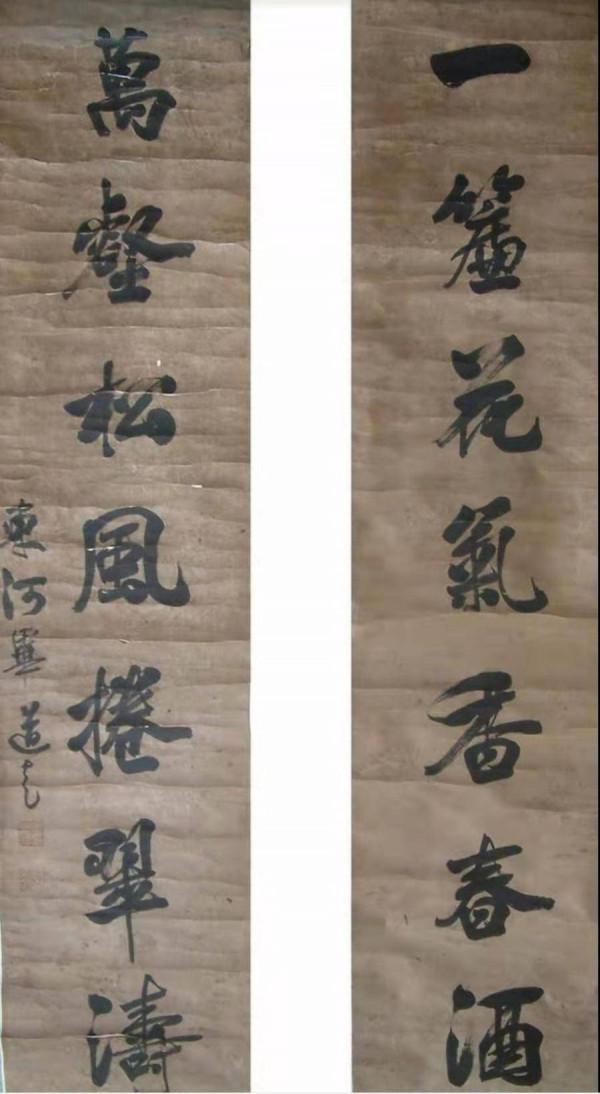 一簾花氣香春酒
萬壑松風捲翠濤
東河畢道遠